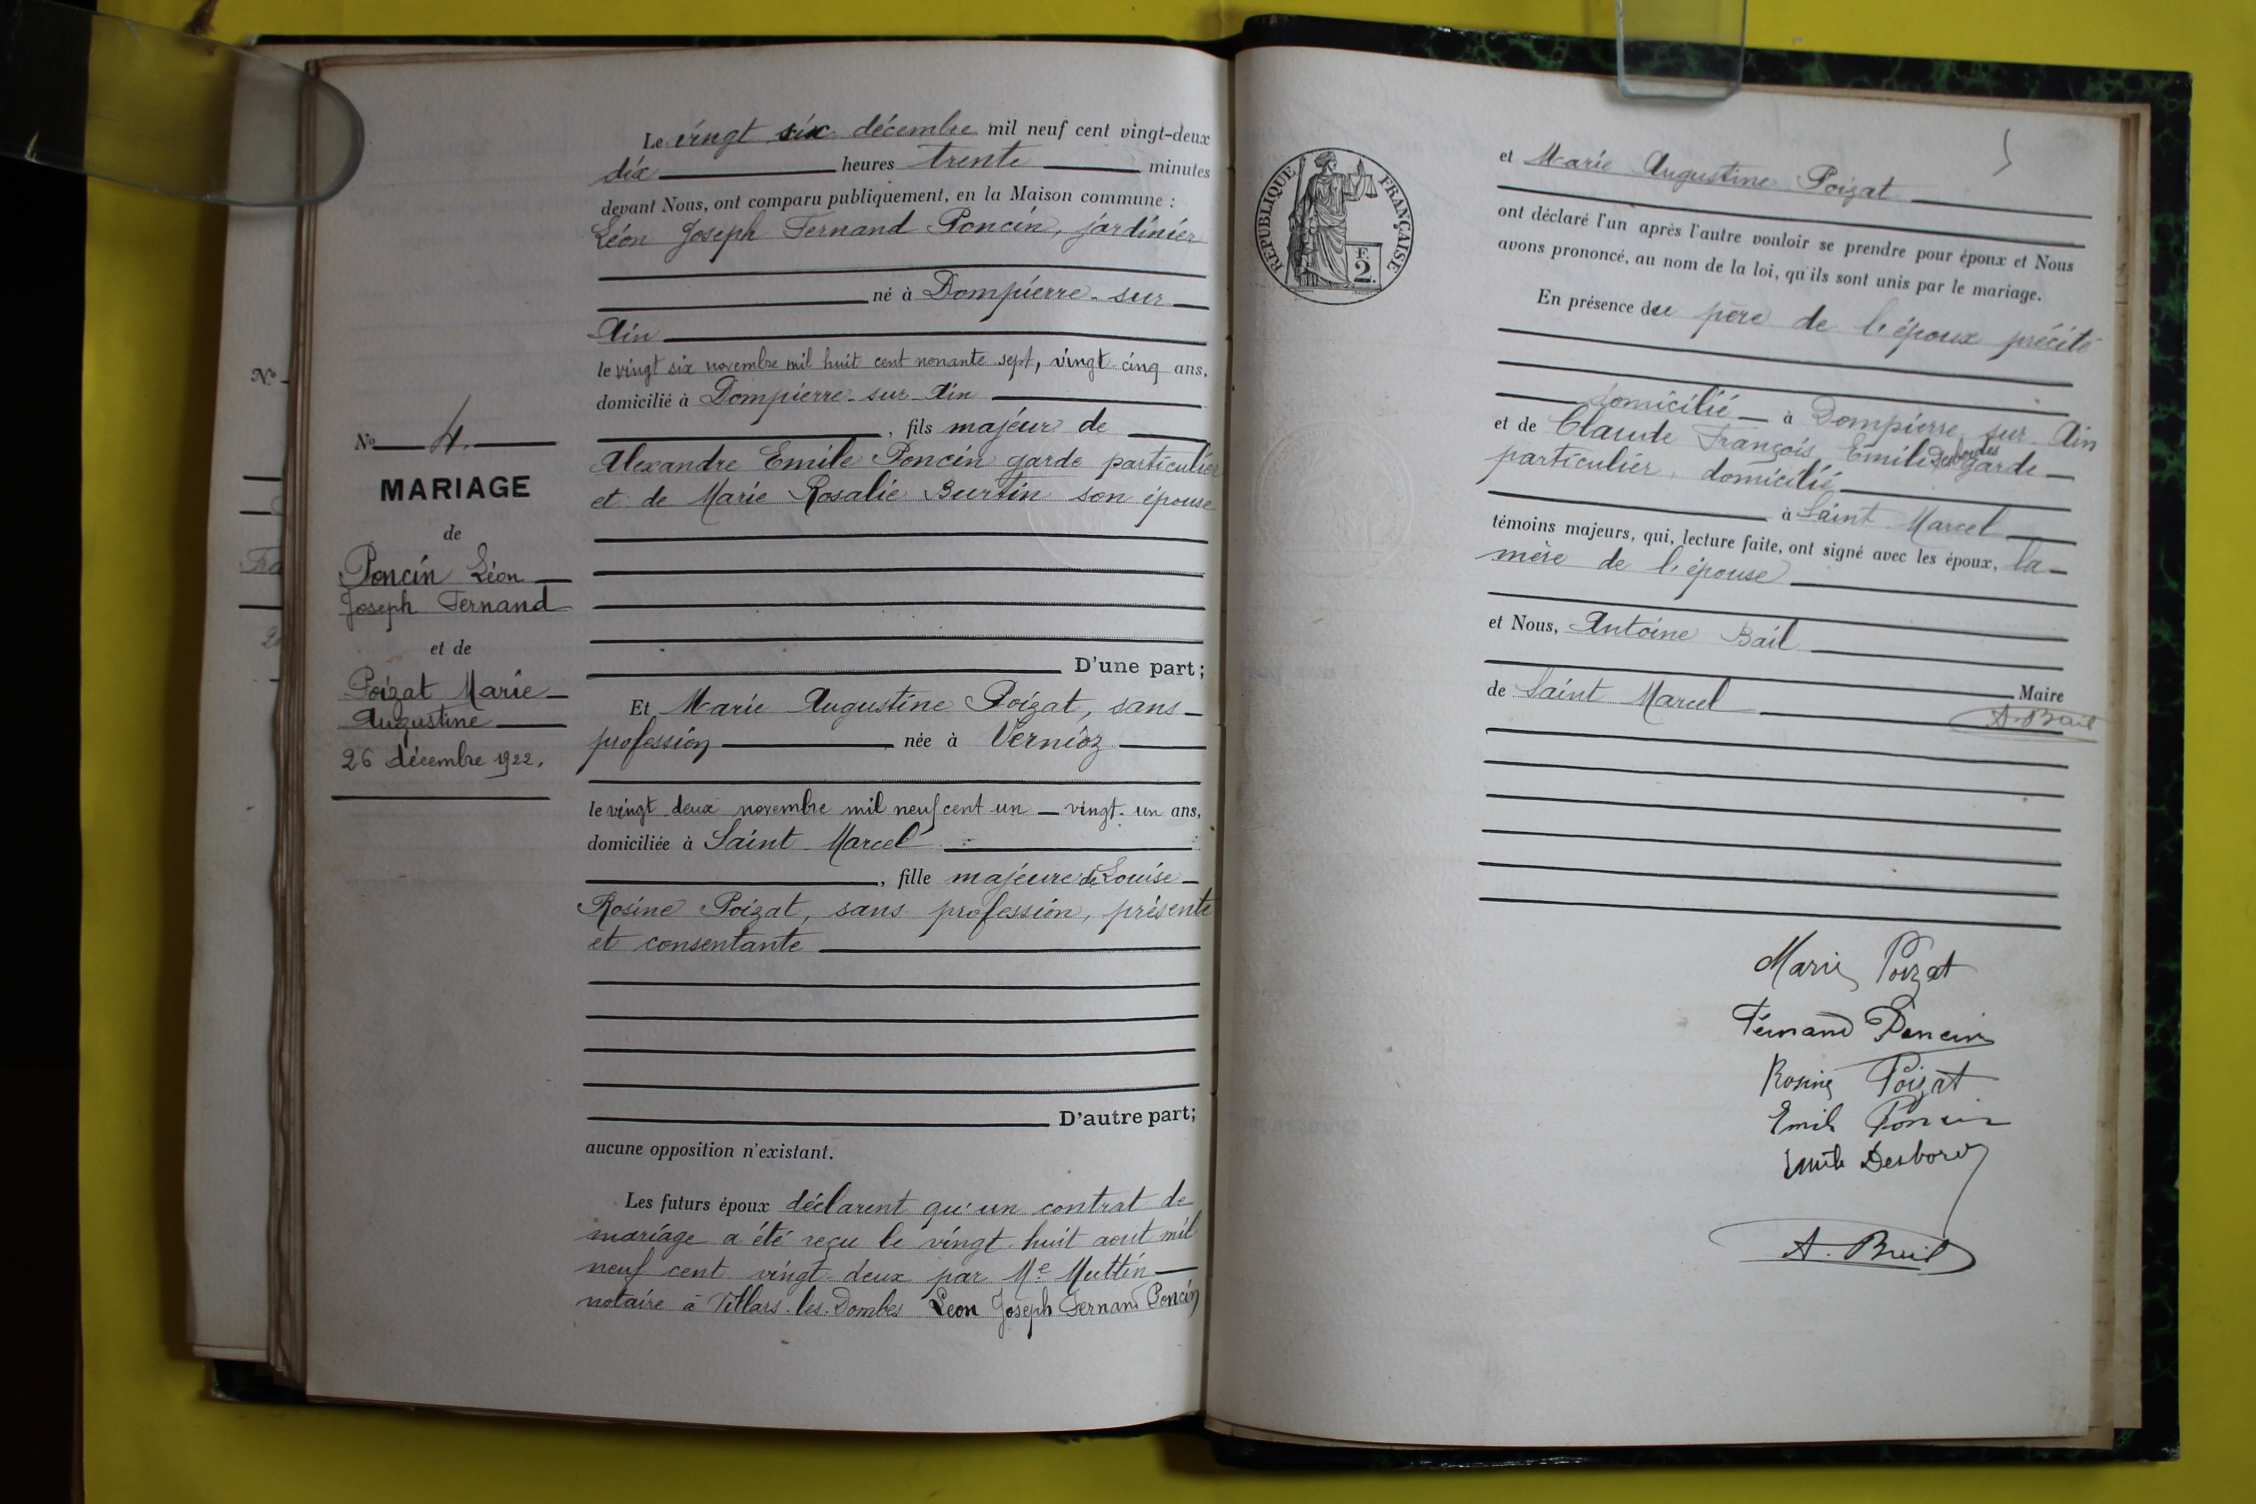 N°
N° 4.
MARIAGE
de
Poncin Léon
Joseph Fernand
et de
Poizat Marie
Augustine
26 décembre 1922.
Le vingt six décembre mil neuf cent vingt-deux
dix heures trente minutes
devant Nous, ont comparu publiquement, en la Maison commune :
Léon Joseph Fernand Poncin, jardinier
né à Dompierre-sur
Ain
le vingt six novembre mil huit cent nonante sept, vingt-cinq ans,
domicilié à Dompierre-sur-Ain
, fils majeur de
Alexandre Emile Poncin garde particulier
et de Marie Rosalie Burtin son épouse
D'une part;
Et Marie Augustine Poizat, sans
profession née à Vernioz
le vingt deux novembre mil neuf cent un vingt-un ans,
domiciliée à Saint Marcel
, fille majeure de Louise
Rosine Poizat, sans profession, présente
et consentante
D'autre part;
aucune opposition n'existant.
Les futurs époux déclarent qu'un contrat de
mariage a été reçu le vingt-huit aout mil
neuf cent vingt-deux par Me Muttin
notaire à Villars-les-Dombes Leon Joseph Fernand Poncin
RÉPUBLIQUE FRANÇAISE
F.
2.
et Marie Augustine Poizat
ont déclaré l'un après l'autre vouloir se prendre pour époux et Nous
avons prononcé, au nom de la loi, qu'ils sont unis par le mariage.
En présence du père de l'époux précité
domicilié à Dompierre-sur-Ain
et de Claude François Emile Desbordes garde
particulier, domicilié
à Saint Marcel
témoins majeurs, qui, lecture faite, ont signé avec les époux, la
mère de l'épouse
et Nous, Antoine Bail
Maire
de Saint Marcel
A. Bail
Marie Poizat
Fernand Poncin
Rosine Poizat
Emile Poncin
Emile Desbordes
A. Bail